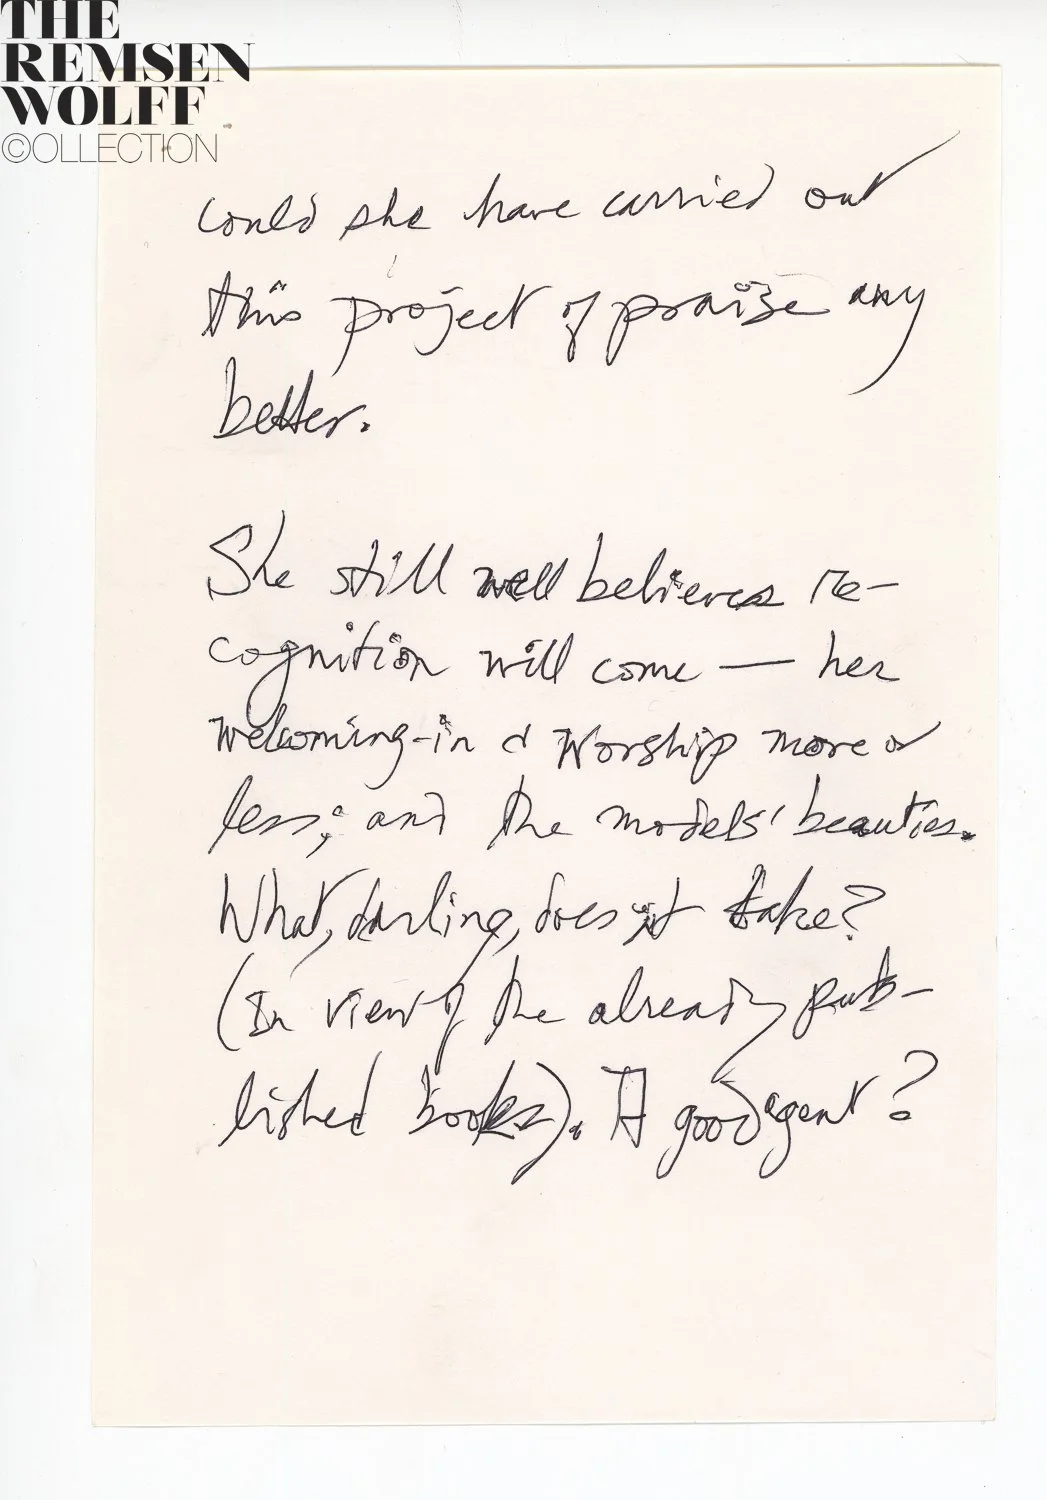 THE
REMSEN
WOLFF
©OLLECTION
could she have carried out
this project of praise any
better.
She still well believes re-
cognition will come — her
welcoming-in & worship more or
less; and the models' beauties.
What, darling, does it take?
(In view of the already pub-
lished books). A good agent?